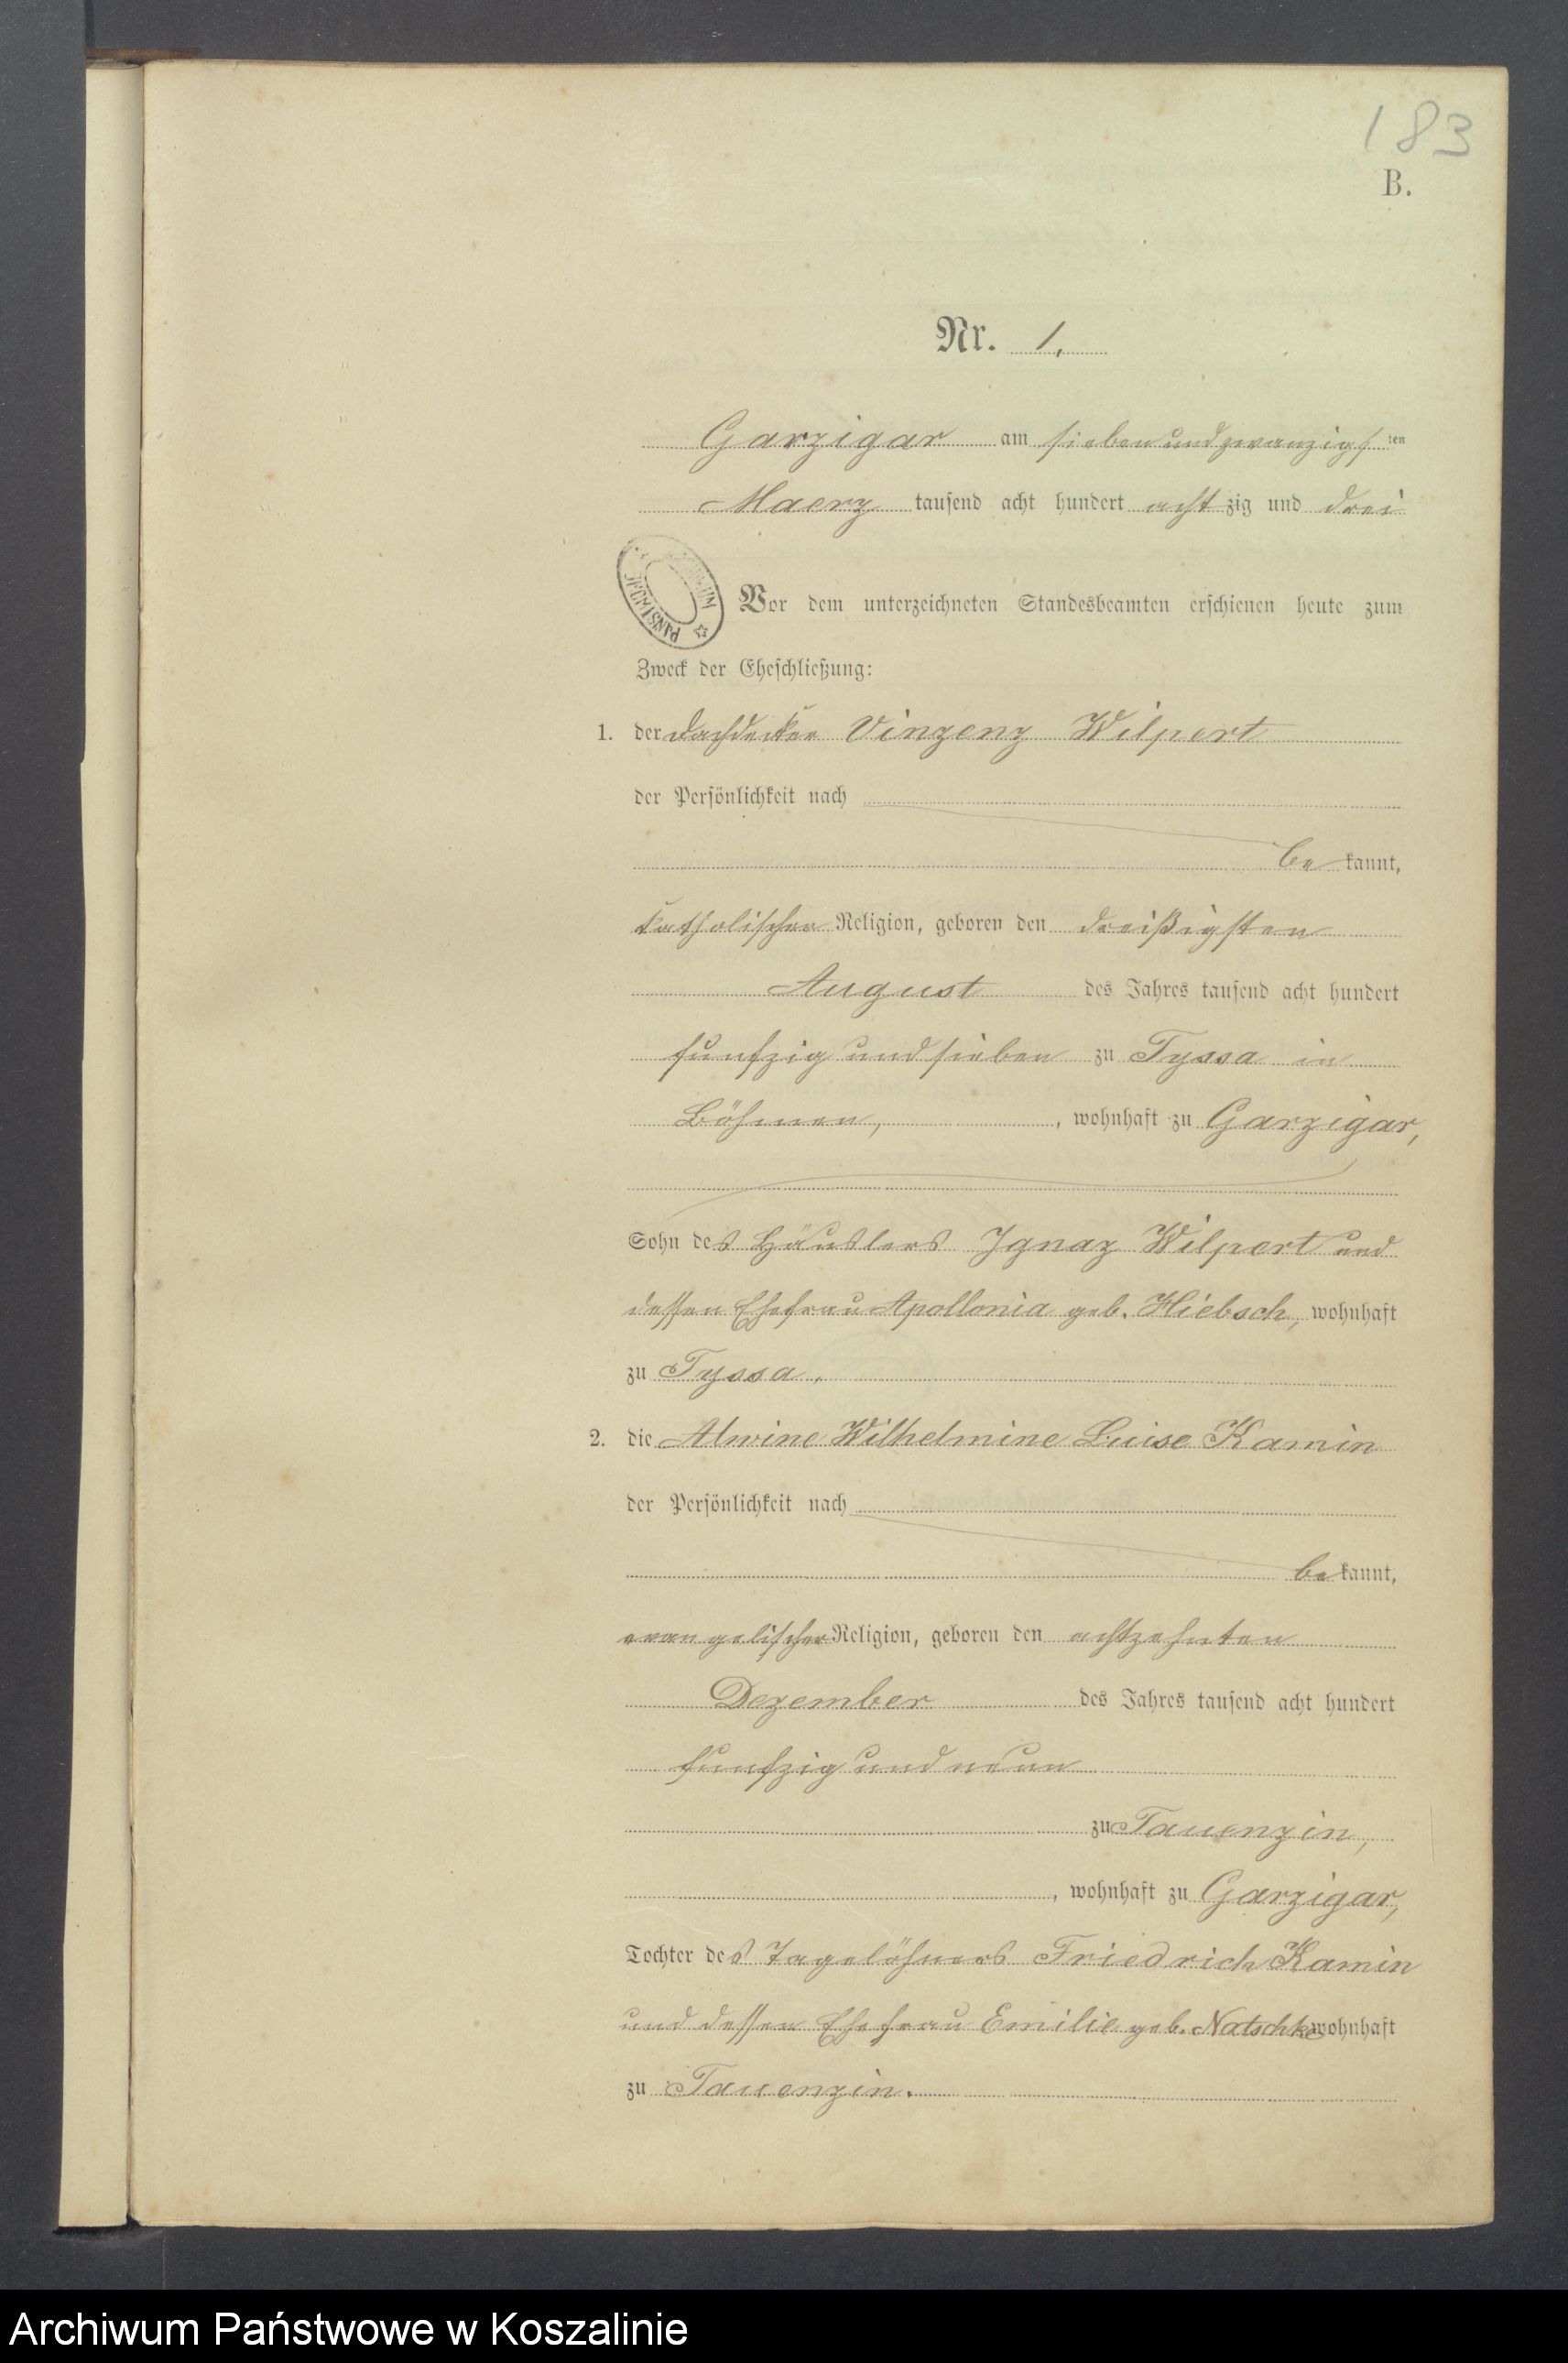 183
B.
Nr. 1.
Garzigar am siebenundzwanzigsten
Maerz tausend acht hundert achtzig und drei
Vor dem unterzeichneten Standesbeamten erschienen heute zum
Zweck der Eheschließung:
1. der Dachdecker Vinzenz Wilpert
der Persönlichkeit nach
bekannt,
katholischer Religion, geboren den dreißigsten
August des Jahres tausend acht hundert
funfzig und sieben zu Tyssa in
Böhmen, , wohnhaft zu Garzigar,
Sohn des Häuslers Ignaz Wilpert und
dessen Ehefrau Apollonia geb. Hiebsch, wohnhaft
zu Tyssa.
2. die Alwine Wilhelmine Luise Kamin
der Persönlichkeit nach
bekannt,
evangelischer Religion, geboren den achtzehnten
Dezember des Jahres tausend acht hundert
funfzig und neun
zu Tauenzin,
, wohnhaft zu Garzigar,
Tochter des Tagelöhners Friedrich Kamin
und dessen Ehefrau Emilie geb. Natschke wohnhaft
zu Tauenzin.
Archiwum Państwowe w Koszalinie